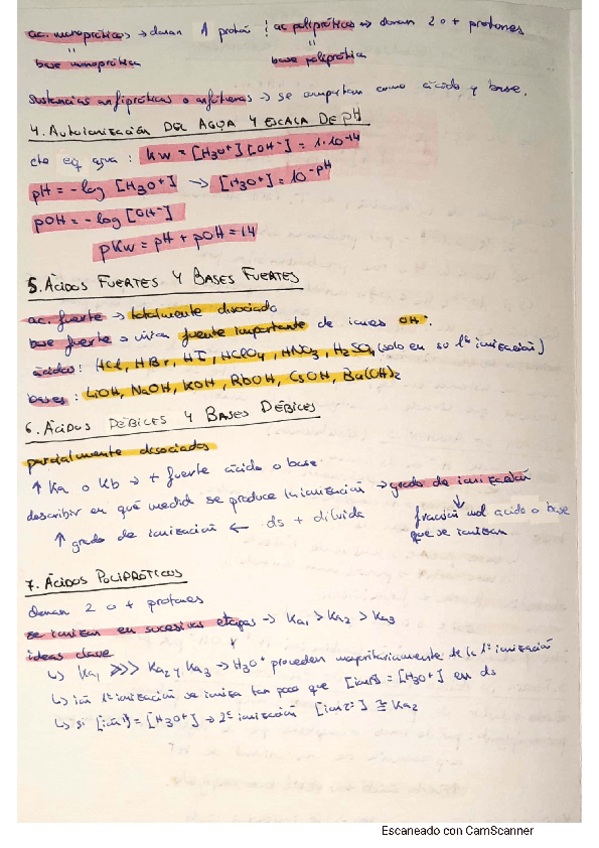 ac. monopróticos → donan 1 protón | ac. polipróticos → donan 2 o + protones
" "
base monoprótica base poliprótica
sustancias anfipróticas o anfóteras → se comportan como ácido y base.
4. AUTOIONIZACIÓN DEL AGUA Y ESCALA DE pH
cte eq agua : Kw = [H3O+][OH-] = 1·10-14
pH = -log [H3O+] → [H3O+] = 10-pH
pOH = -log [OH-]
pKw = pH + pOH = 14
5. ÁCIDOS FUERTES Y BASES FUERTES
ac. fuerte → totalmente disociado
base fuerte → fuente importante de iones OH-.
ácidos : HCl, HBr, HI, HClO4, HNO3, H2SO4 (solo en su 1ª ionización)
bases : LiOH, NaOH, KOH, RbOH, CsOH, Ba(OH)2
6. ÁCIDOS DÉBILES Y BASES DÉBILES
parcialmente disociados
↑ Ka o Kb → + fuerte ácido o base
describir en qué medida se produce la ionización → grado de ionización
↑ grado de ionización ← ds + diluida
fracción mol acido o base
que se ionizan
7. ÁCIDOS POLIPRÓTICOS
donan 2 o + protones
se ionizan en sucesivas etapas → Ka1 > Ka2 > Ka3
ideas clave
↳ Ka1 >>> Ka2 y Ka3 → H3O+ proceden mayoritariamente de la 1ª ionización
↳ ión 1ª ionización se ioniza tan poco que [ión1-] = [H3O+] en ds
↳ si [ión1-] = [H3O+] → 2ª ionización [ión2-] ≅ Ka2
Escaneado con CamScanner